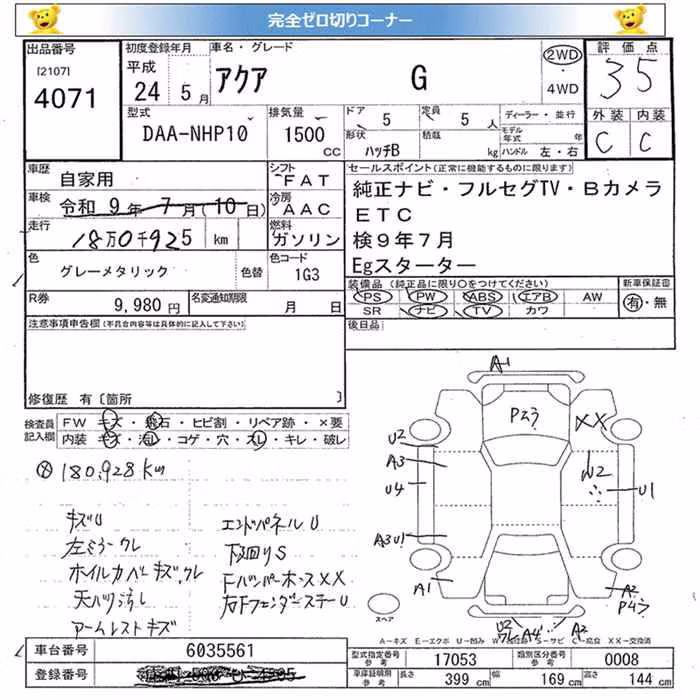 完全ゼロ切りコーナー
出品番号
[2107]
4071
初度登録年月
平成
24年 5月
車名・グレード
アクア G
2WD
4WD
評価点
35
外装 内装
C C
型式
DAA-NHP10
排気量
1500 CC
ドア 5
定員 5 人
形状 ハッチB
積載 kg
ディーラー・並行
モデル年式 年
ハンドル 左・右
車歴 自家用
車検 令和 9年 7月(10日)
走行 18万0千925 km
色 グレーメタリック 色替
シフト FAT
冷房 AAC
燃料 ガソリン
色コード 1G3
セールスポイント(正常に機能するものに限ります)
純正ナビ・フルセグTV・Bカメラ
ETC
検9年7月
Egスターター
装備品(純正品に限り○をつけてください)
PS PW ABS エアB AW
SR ナビ TV カワ
新車保証書
有・無
R券 9,980 円
名変通知期限 月 日
後日品
注意事項申告欄(不具合内容等は具体的に記入して下さい)
修復歴 有[箇所 ]
検査員記入欄
FW キズ・飛石・ヒビ割・リペア跡・×要
内装 キズ・汚レ・コゲ・穴・スレ・キレ・破レ
180,928km
キズU
左ミラークレ
ホイルカバーキズ,クレ
天バリ汚レ
アームレストキズ
エンドパネルU
下廻りS
FバンパーホースXX
右FフェンダーステーU
A1
P23
XX
U2
A3
U4
A3 U1
A1
U2
U1
A2
P43
U2
クレ
A4
A2
スペア
A-キズ E-エクボ U-凹み W-補修跡 S-サビ C-腐食 XX-交換済
車台番号 6035561
登録番号
型式指定番号 参考 17053
類別区分番号 参考 0008
車庫証明用 参考 長さ 399 cm 幅 169 cm 高さ 144 cm